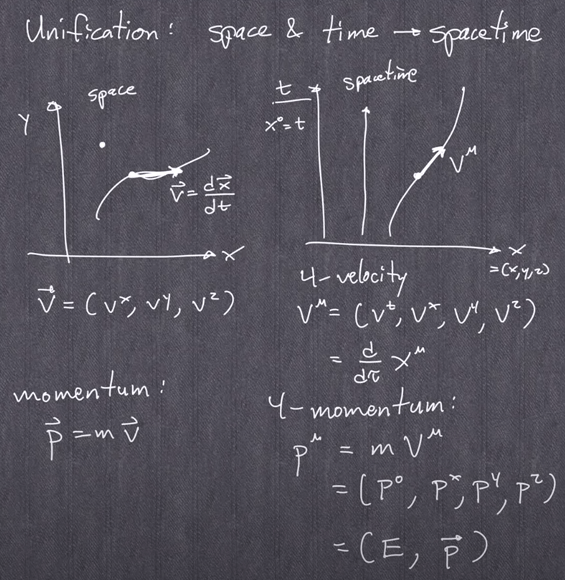 Unification: space & time → spacetime
space
Y
v⃗ = dx⃗/dt
x
v⃗ = (vˣ, vʸ, vᶻ)
momentum:
p⃗ = m v⃗
t
x⁰=t
spacetime
Vᵘ
x
=(x,y,z)
4-velocity
Vᵘ = (Vᵗ, Vˣ, Vʸ, Vᶻ)
= d/dτ xᵘ
4-momentum:
pᵘ = m Vᵘ
= (P⁰, Pˣ, Pʸ, Pᶻ)
= (E, p⃗)